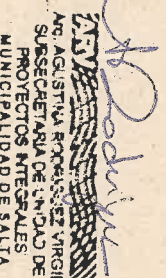 ARQ. AGUSTINA RODRIGUEZ VIRGILI
SUBSECRETARIA DE UNIDAD DE
PROYECTOS INTEGRALES
MUNICIPALIDAD DE SALTA